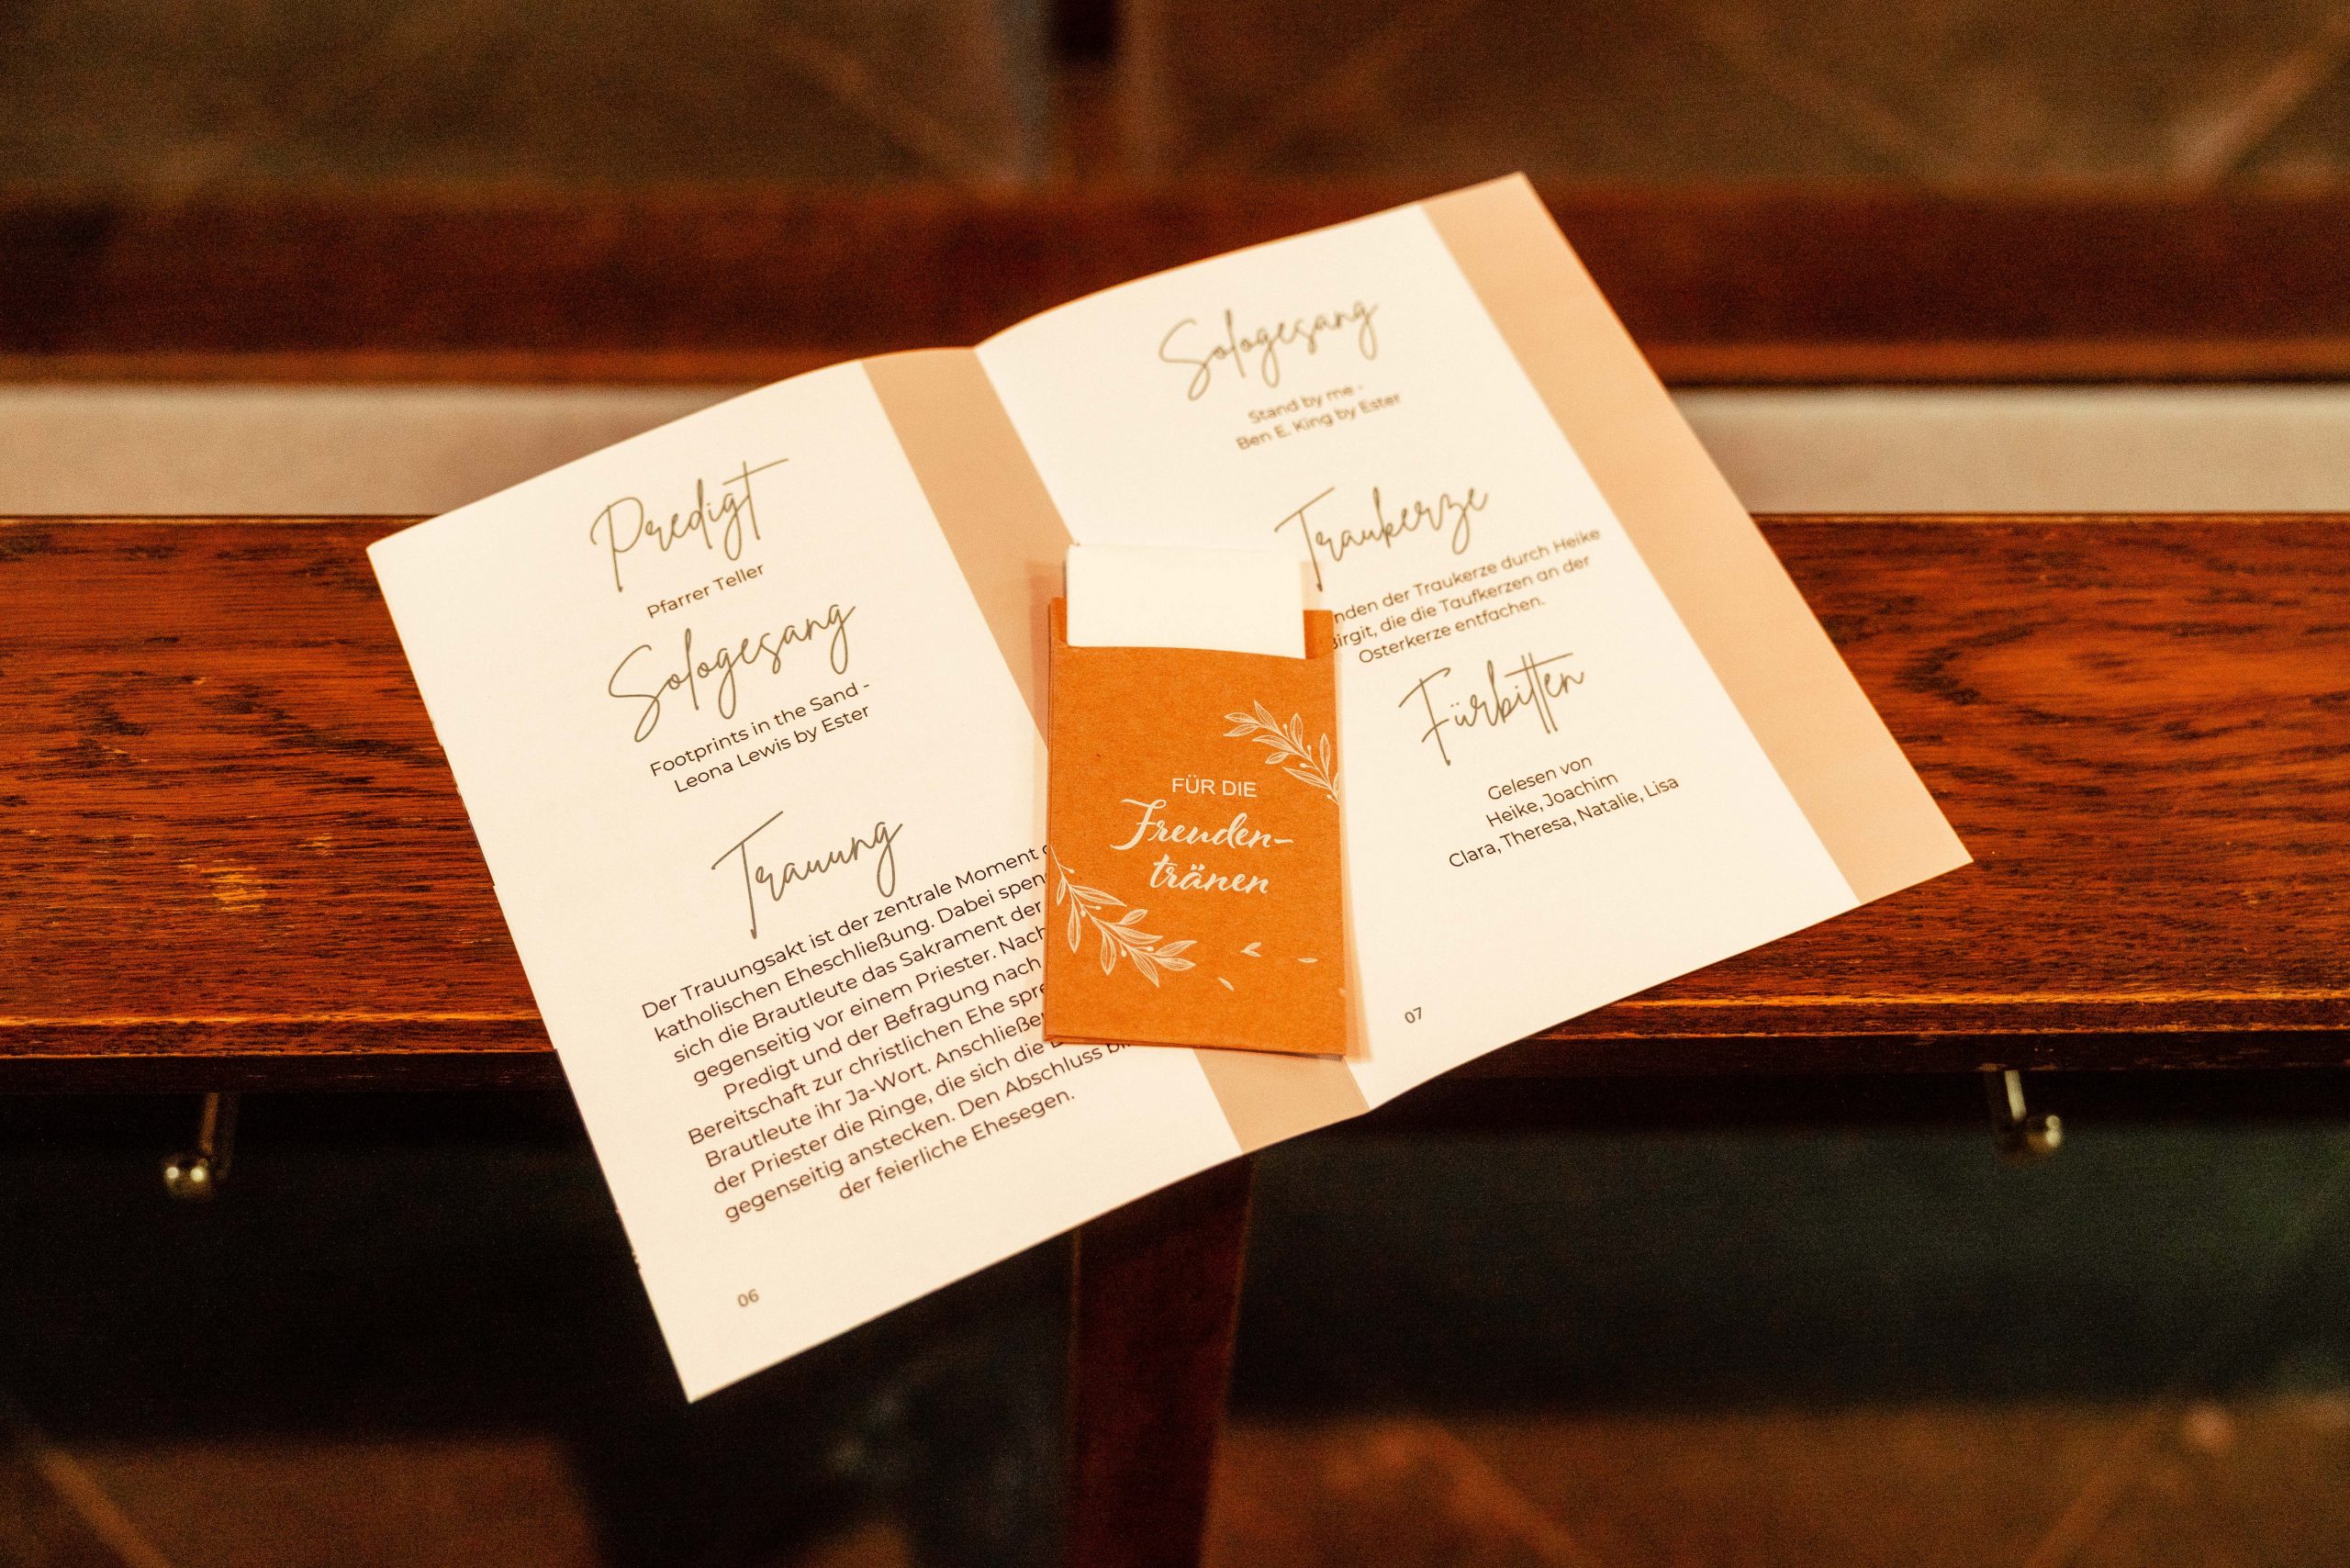 Predigt
Pfarrer Teller
Sologesang
Footprints in the Sand -
Leona Lewis by Ester
Trauung
Der Trauungsakt ist der zentrale Moment
katholischen Eheschließung. Dabei spen
sich die Brautleute das Sakrament der
gegenseitig vor einem Priester. Nach
Predigt und der Befragung nach
Bereitschaft zur christlichen Ehe spre
Brautleute ihr Ja-Wort. Anschließe
der Priester die Ringe, die sich die
gegenseitig anstecken. Den Abschluss
der feierliche Ehesegen.
06
FÜR DIE
Freuden-
tränen
Sologesang
Stand by me -
Ben E. King by Ester
Traukerze
nden der Traukerze durch Heike
Birgit, die die Taufkerzen an der
Osterkerze entfachen.
Fürbitten
Gelesen von
Heike, Joachim
Clara, Theresa, Natalie, Lisa
07